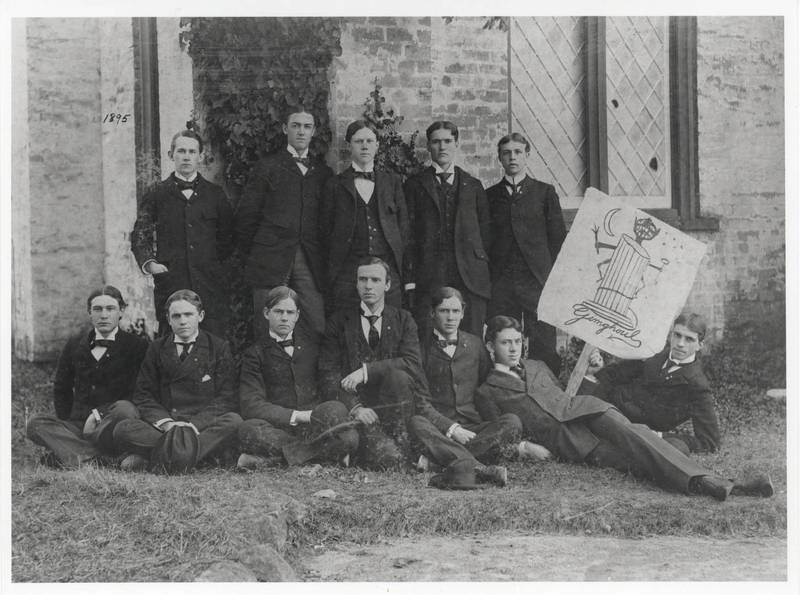 1895
Gimghoul